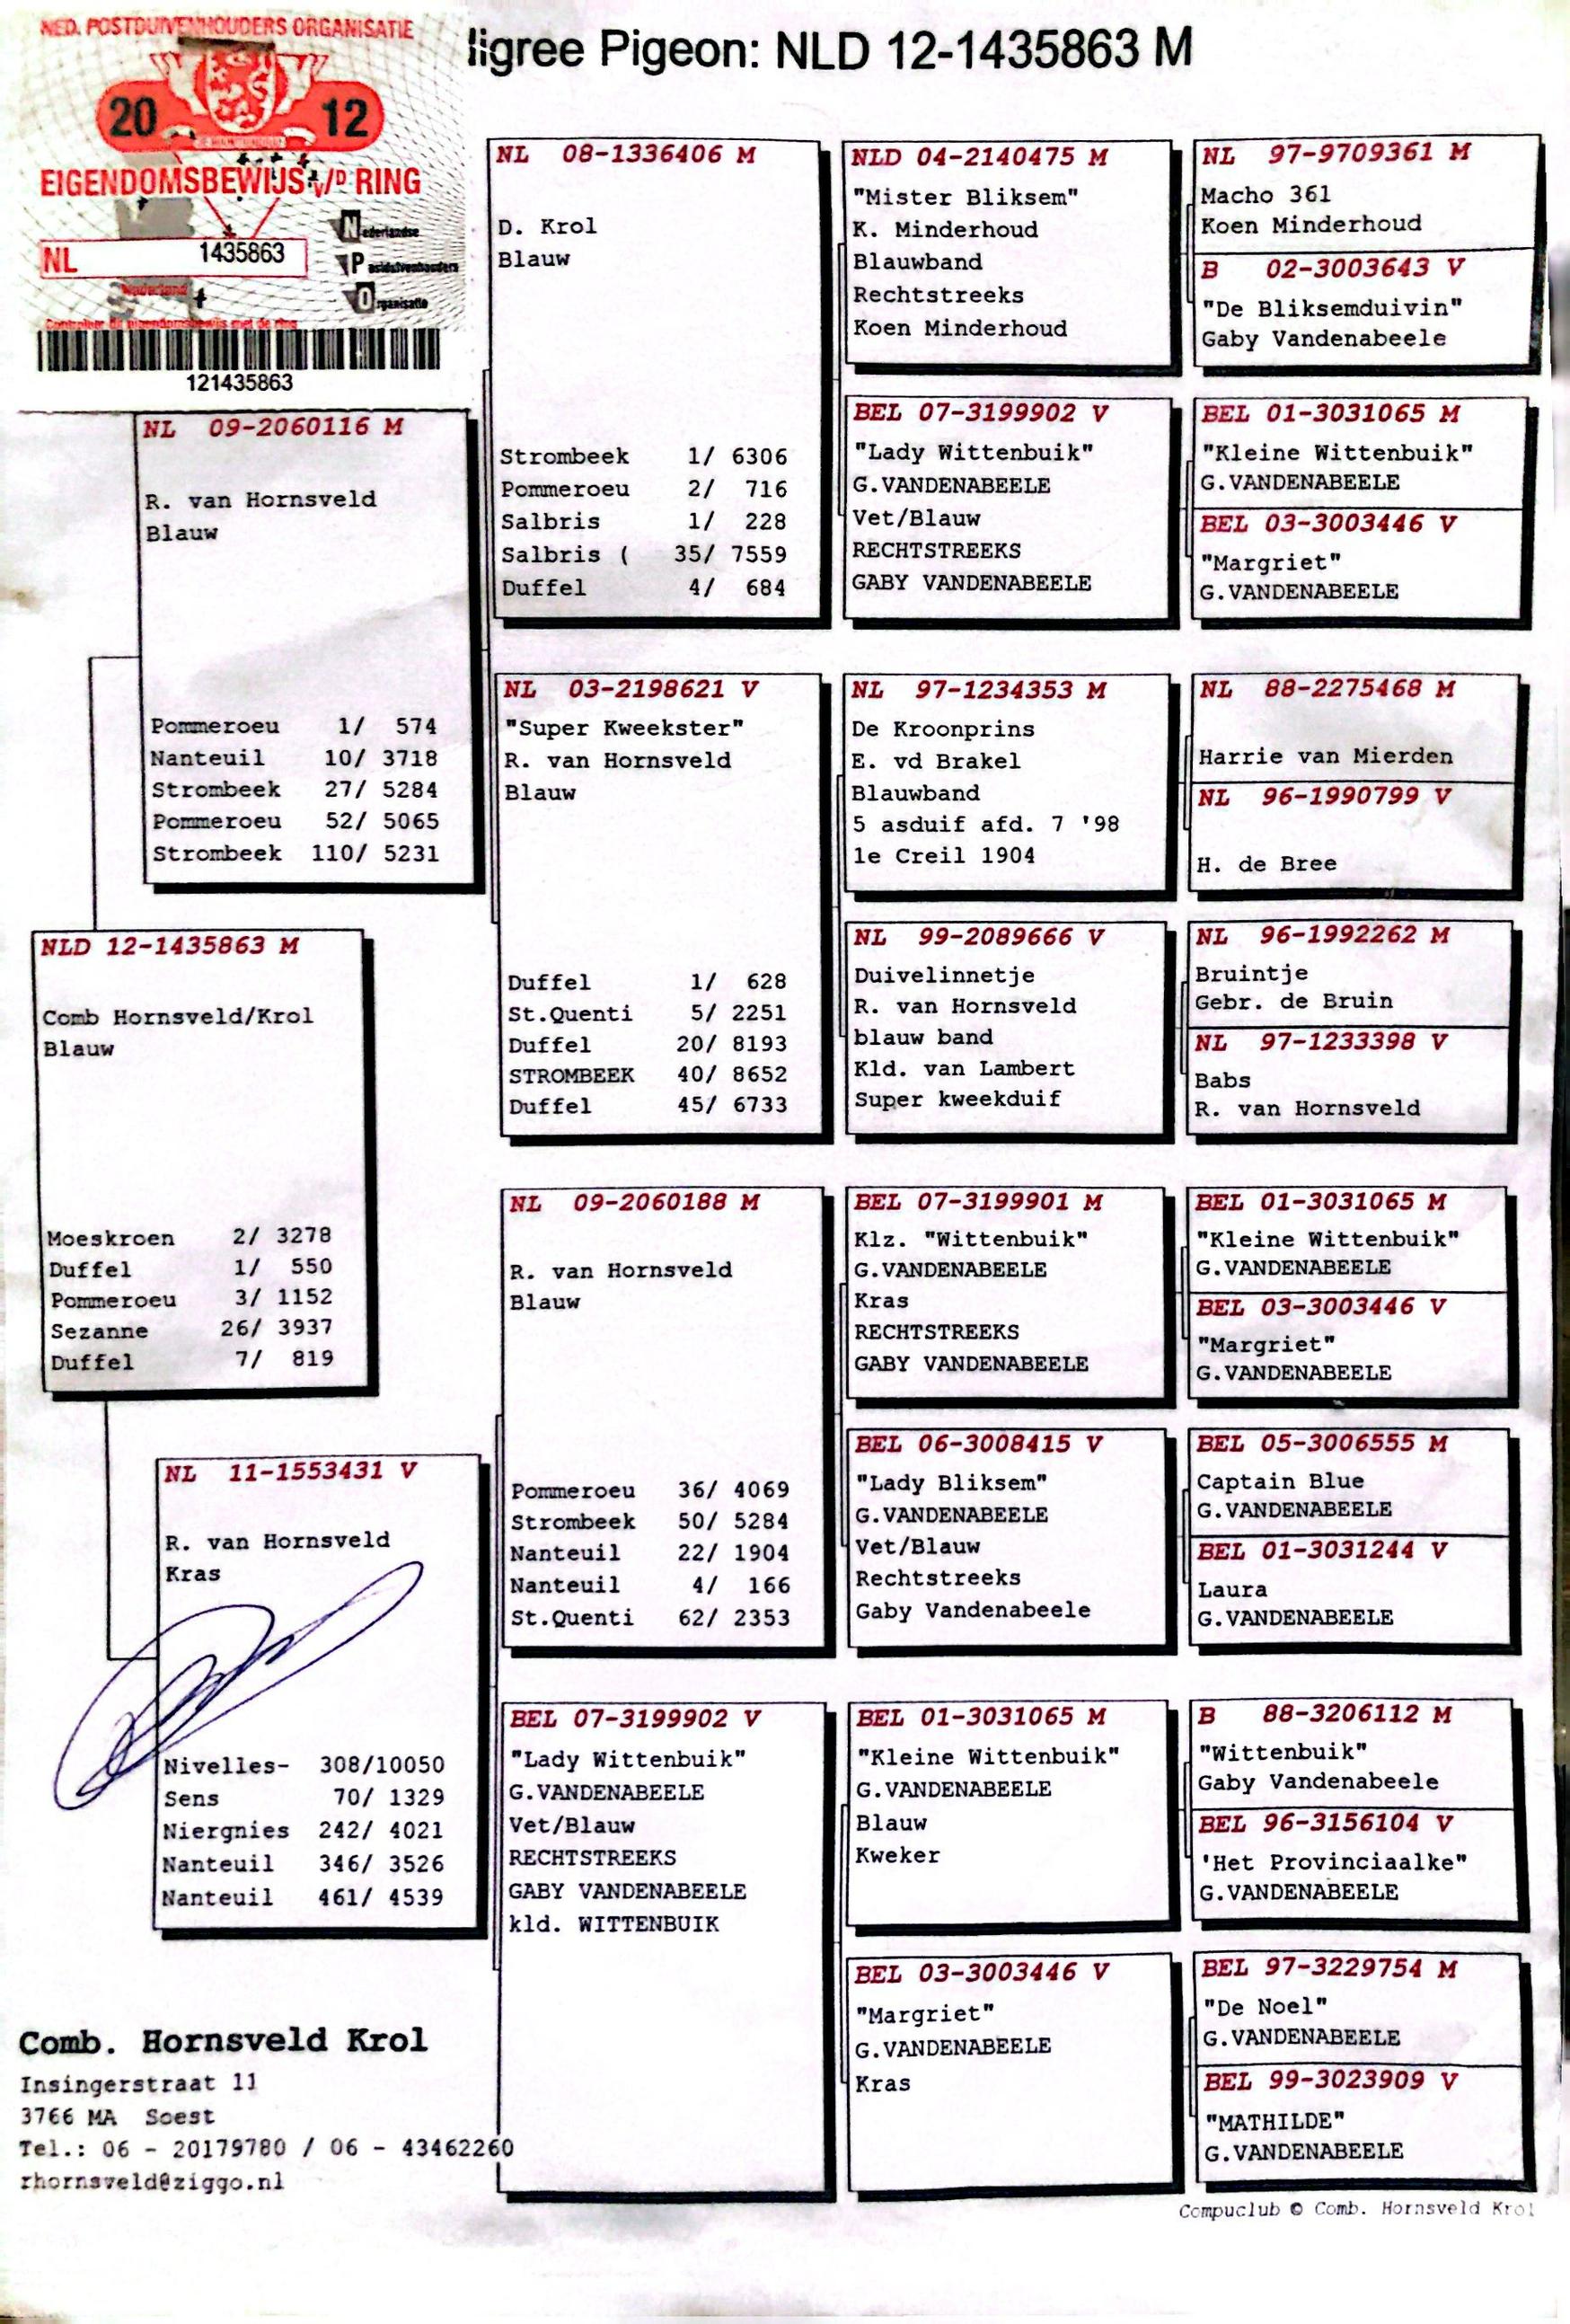 NED. POSTDUIVENHOUDERS ORGANISATIE
20 12
EIGENDOMSBEWIJS v/D RING
NL 1435863
Nederland
Nederlandse
Postduivenhouders
Organisatie
Controleer dit eigendomsbewijs met de ring
121435863
ligree Pigeon: NLD 12-1435863 M
NL 09-2060116 M
R. van Hornsveld
Blauw
Pommeroeu 1/ 574
Nanteuil 10/ 3718
Strombeek 27/ 5284
Pommeroeu 52/ 5065
Strombeek 110/ 5231
NLD 12-1435863 M
Comb Hornsveld/Krol
Blauw
Moeskroen 2/ 3278
Duffel 1/ 550
Pommeroeu 3/ 1152
Sezanne 26/ 3937
Duffel 7/ 819
NL 11-1553431 V
R. van Hornsveld
Kras
Nivelles- 308/10050
Sens 70/ 1329
Niergnies 242/ 4021
Nanteuil 346/ 3526
Nanteuil 461/ 4539
NL 08-1336406 M
D. Krol
Blauw
Strombeek 1/ 6306
Pommeroeu 2/ 716
Salbris 1/ 228
Salbris ( 35/ 7559
Duffel 4/ 684
NL 03-2198621 V
"Super Kweekster"
R. van Hornsveld
Blauw
Duffel 1/ 628
St.Quenti 5/ 2251
Duffel 20/ 8193
STROMBEEK 40/ 8652
Duffel 45/ 6733
NL 09-2060188 M
R. van Hornsveld
Blauw
Pommeroeu 36/ 4069
Strombeek 50/ 5284
Nanteuil 22/ 1904
Nanteuil 4/ 166
St.Quenti 62/ 2353
BEL 07-3199902 V
"Lady Wittenbuik"
G.VANDENABEELE
Vet/Blauw
RECHTSTREEKS
GABY VANDENABEELE
kld. WITTENBUIK
NLD 04-2140475 M
"Mister Bliksem"
K. Minderhoud
Blauwband
Rechtstreeks
Koen Minderhoud
BEL 07-3199902 V
"Lady Wittenbuik"
G.VANDENABEELE
Vet/Blauw
RECHTSTREEKS
GABY VANDENABEELE
NL 97-1234353 M
De Kroonprins
E. vd Brakel
Blauwband
5 asduif afd. 7 '98
1e Creil 1904
NL 99-2089666 V
Duivelinnetje
R. van Hornsveld
blauw band
Kld. van Lambert
Super kweekduif
BEL 07-3199901 M
Klz. "Wittenbuik"
G.VANDENABEELE
Kras
RECHTSTREEKS
GABY VANDENABEELE
BEL 06-3008415 V
"Lady Bliksem"
G.VANDENABEELE
Vet/Blauw
Rechtstreeks
Gaby Vandenabeele
BEL 01-3031065 M
"Kleine Wittenbuik"
G.VANDENABEELE
Blauw
Kweker
BEL 03-3003446 V
"Margriet"
G.VANDENABEELE
Kras
NL 97-9709361 M
Macho 361
Koen Minderhoud
B 02-3003643 V
"De Bliksemduivin"
Gaby Vandenabeele
BEL 01-3031065 M
"Kleine Wittenbuik"
G.VANDENABEELE
BEL 03-3003446 V
"Margriet"
G.VANDENABEELE
NL 88-2275468 M
Harrie van Mierden
NL 96-1990799 V
H. de Bree
NL 96-1992262 M
Bruintje
Gebr. de Bruin
NL 97-1233398 V
Babs
R. van Hornsveld
BEL 01-3031065 M
"Kleine Wittenbuik"
G.VANDENABEELE
BEL 03-3003446 V
"Margriet"
G.VANDENABEELE
BEL 05-3006555 M
Captain Blue
G.VANDENABEELE
BEL 01-3031244 V
Laura
G.VANDENABEELE
B 88-3206112 M
"Wittenbuik"
Gaby Vandenabeele
BEL 96-3156104 V
'Het Provinciaalke"
G.VANDENABEELE
BEL 97-3229754 M
"De Noel"
G.VANDENABEELE
BEL 99-3023909 V
"MATHILDE"
G.VANDENABEELE
Comb. Hornsveld Krol
Insingerstraat 11
3766 MA Soest
Tel.: 06 - 20179780 / 06 - 43462260
rhornsveld@ziggo.nl
Compuclub © Comb. Hornsveld Krol